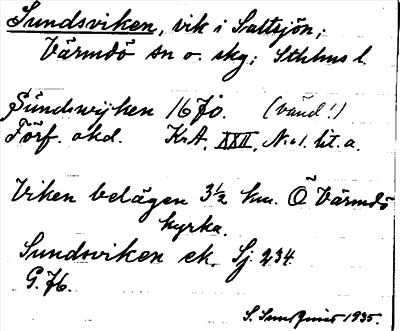 Sundsviken, vik i Saltsjön;
Värmdö sn o. skg; Sthlms l.
Sündswijken 1670. (vänd!)
Förf. okd. KrA, XXII, N:o 1. lit. a.
Viken belägen 3½ km. Ö Värmdö
kyrka.
Sundsviken ek. Sj 234.
G. 76.
S. 1935.